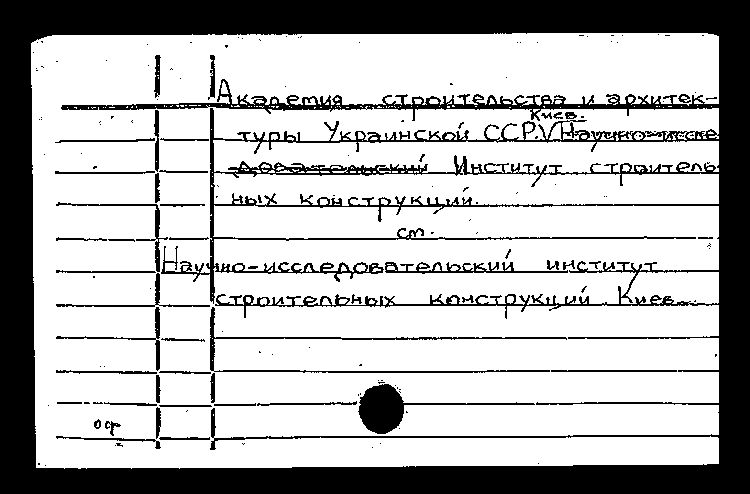 Академия строительства и архитек-
Киев.
туры Украинской ССР. V Научно-иссле
довательский Институт строитель
ных конструкций.
см.
Научно-исследовательский институт
строительных конструкций Киев.
оф